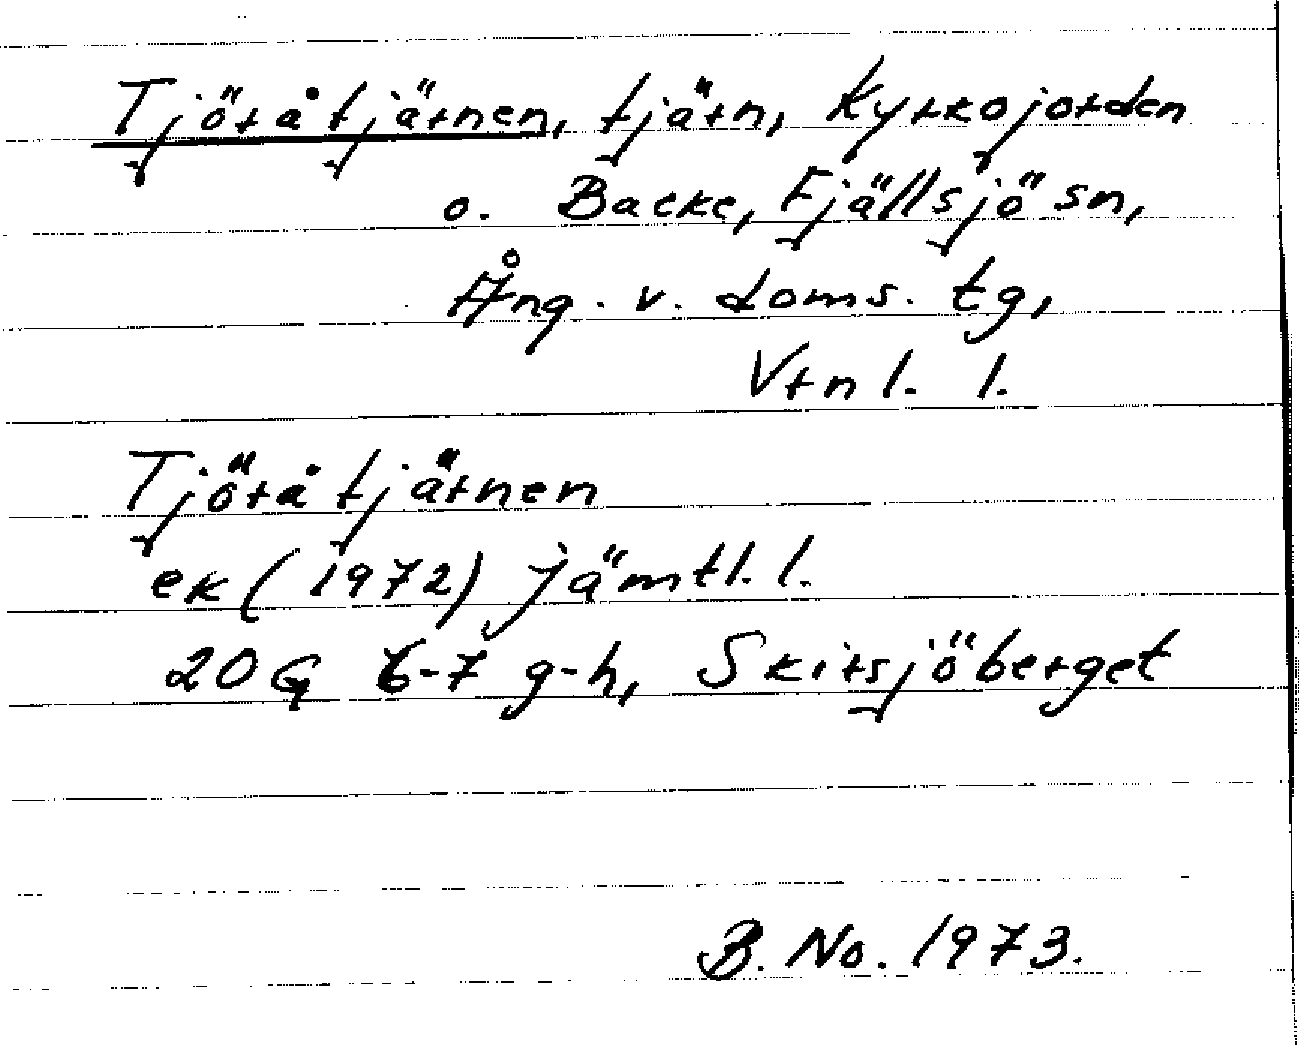 Tjöråtjärnen, tjärn, Kyrkojorden
o. Backe, Fjällsjö sn,
Ång. v. doms. tg,
Vrnl. l.
Tjöråtjärnen
ek (1972) Jämtl. l.
20G 6-7 g-h, Skirsjöberget
B. No. 1973.